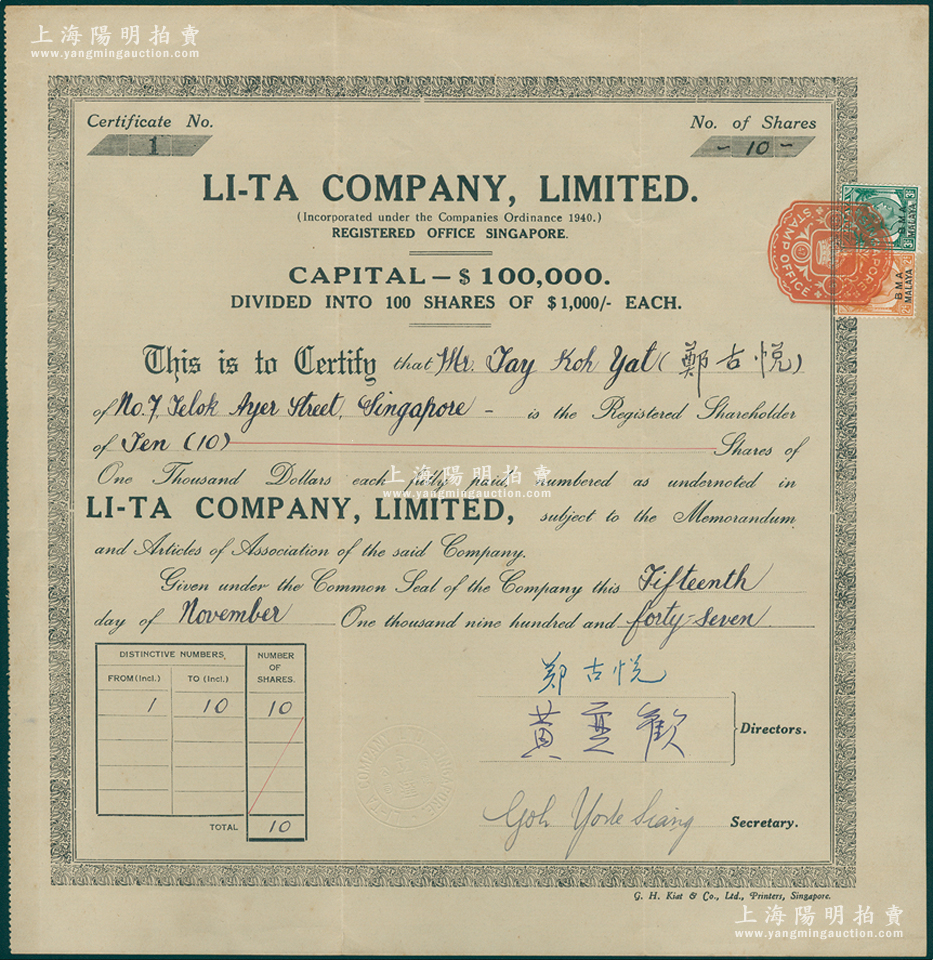 上海陽明拍賣
www.yangmingauction.com
Certificate No.
1
No. of Shares
- 10 -
LI-TA COMPANY, LIMITED.
(Incorporated under the Companies Ordinance 1940.)
REGISTERED OFFICE SINGAPORE.
CAPITAL — $ 100,000.
DIVIDED INTO 100 SHARES OF $1,000/- EACH.
STAMP OFFICE
SINGAPORE
B M A
MALAYA
3c
B M A
MALAYA
2c
This is to Certify that Mr. Tay Koh Yat (鄭古悅)
of No. 7, Telok Ayer Street, Singapore - is the Registered Shareholder
of Ten (10) Shares of
One Thousand Dollars each fully paid numbered as undernoted in
上海陽明拍賣
www.yangmingauction.com
LI-TA COMPANY, LIMITED, subject to the Memorandum
and Articles of Association of the said Company.
Given under the Common Seal of the Company this Fifteenth
day of November One thousand nine hundred and forty-seven
DISTINCTIVE NUMBERS. NUMBER OF SHARES.
FROM (Incl.) TO (Incl.)
1 10 10
TOTAL 10
鄭古悅
黃 歡
Directors.
Goh Yode Siang Secretary.
G. H. Kiat & Co., Ltd., Printers, Singapore.
上海陽明拍賣
www.yangmingauction.com